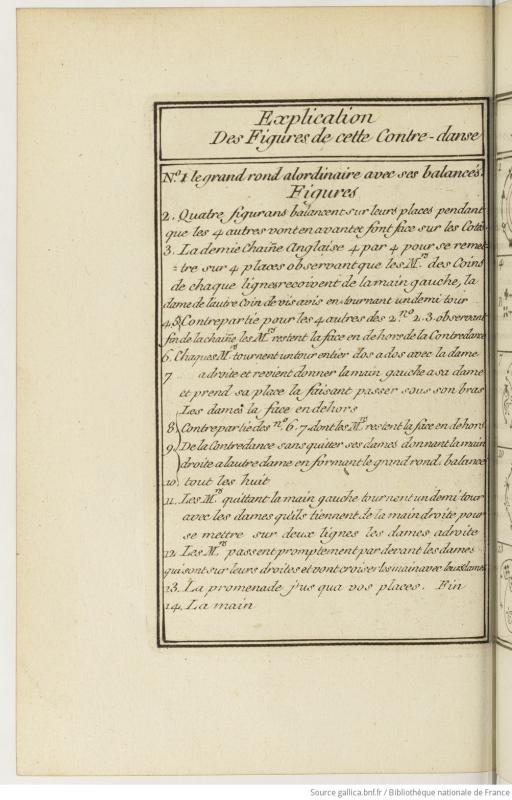 Explication
Des Figures de cette Contre-danse
N.º 1 le grand rond alordinaire avec ses balancés.
Figures
2. Quatre figurans balancent sur leurs places pendant
que les 4 autres vont en avant et font face sur les Cotés
3. La demie Chaîne Anglaise 4 par 4 pour se remet-
=tre sur 4 places observant que les M.rs des Coins
de chaque lignes recoivent de la main gauche, la
dame de lautre Coin de vis avis en tournant un demi tour
4.5. Contrepartie pour les 4 autres des 2 n.º 2.3. observant
fin de la chaîne, les M.rs restent la face en dehors de la Contredance
6. Chaques M.rs tournent un tour entier dos a dos avec la dame
7 a droite et revient donner la main gauche a sa dame
et prend sa place la faisant passer sous son bras
Les dames la face en dehors
8 Contrepartie des n.º 6.7. dont les M.rs restent la face en dehors
9. De la Contredance sans quitter ses dames donnant la main
droite a lautre dame en formant le grand rond, balancé
10. tout les huit
11. Les M.rs quittant la main gauche tournent un demi tour
avec les dames qu'ils tiennent de la main droite pour
se mettre sur deux lignes les dames adroite
12. Les M.rs passent promptement par devant les dames
qui sont sur leurs droites et vont croiser les main avec leurs dames
13. La promenade j'us qua vos places. Fin
14. La main
Source gallica.bnf.fr / Bibliothèque nationale de France